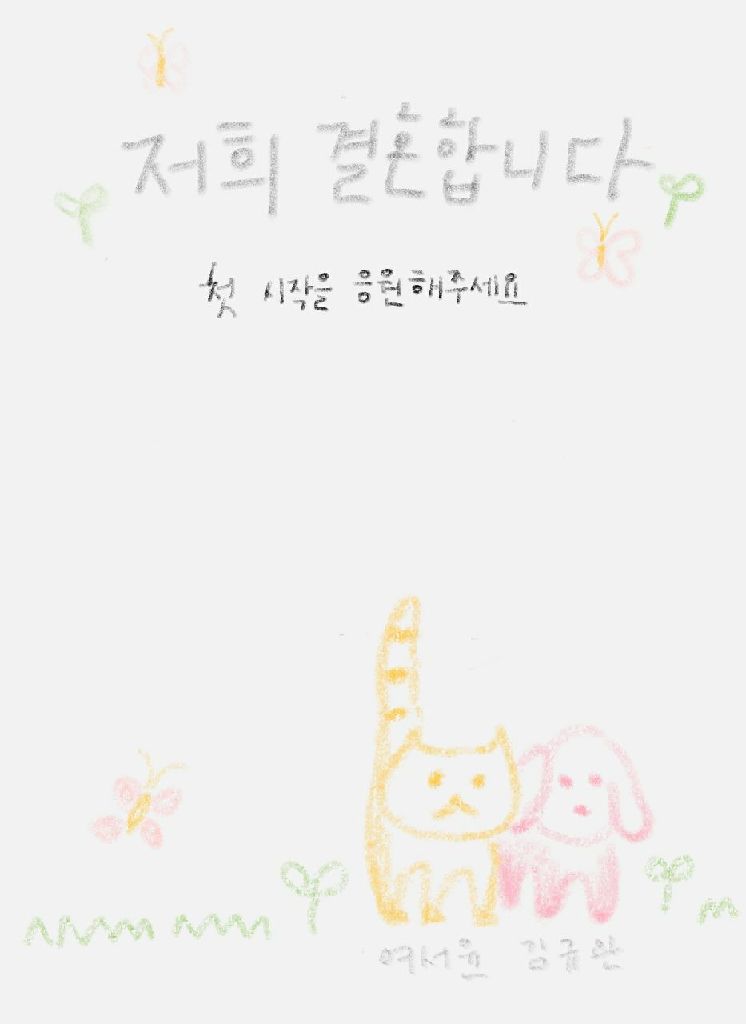 저희 결혼합니다
첫 시작을 응원해주세요
여서윤 김규완